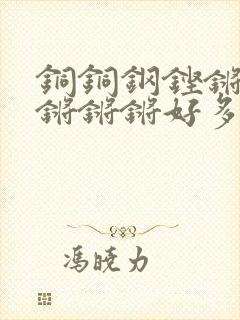 銅銅鋼鏗鏘
鏘鏘鏘好多
馮曉力